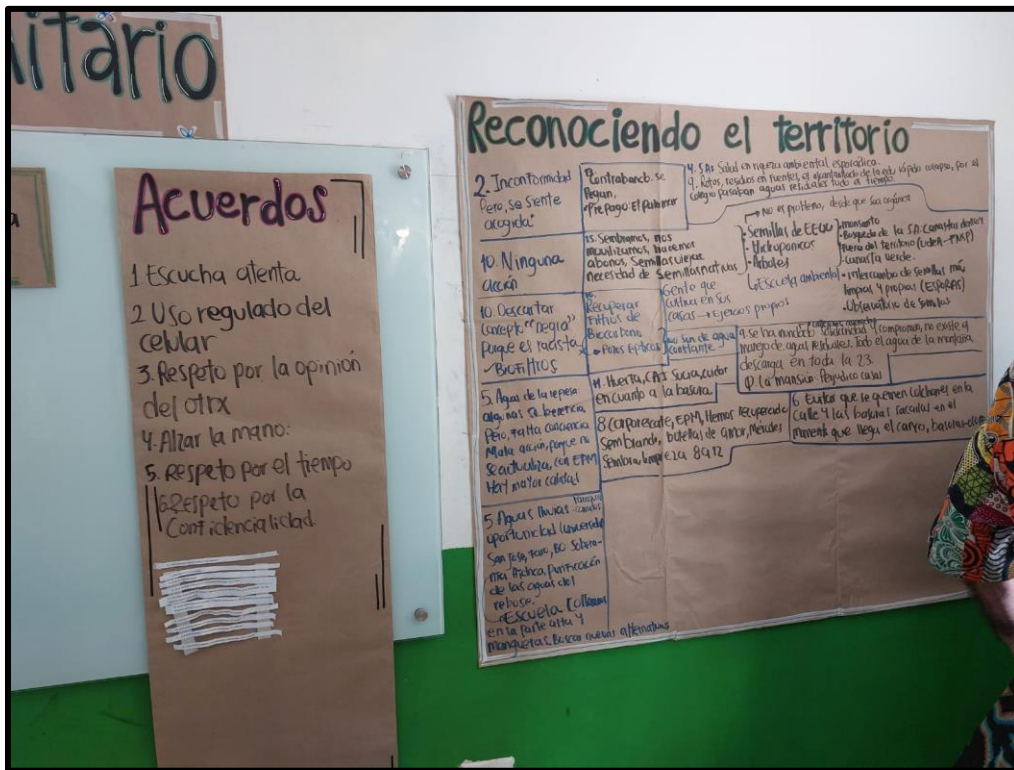 nitario
a
Acuerdos
1. Escucha atenta
2 Uso regulado del
celular
3. Respeto por la opinión
del otrx
4. Alzar la mano:
5. Respeto por el tiempo
6. Respeto por la
Confidencialidad.
Reconociendo el territorio
2. Inconformidad
Pero, se siente
acogida"
9.
Contrabando. se
Pegan,
• Prepago: El palomar
4. SA: Salud en riqueza ambiental esporádica.
9. Retos, residuos en fuentes, el alcantarillado de la edu rápido colapso, por el
colegio pasaban aguas residuales todo a tiempo
10. Ninguna
acción
15. Sembramos, nos
movilizamos, hacemos
abonos, Semillas viejas
necesidad de Semillas nativas
No es problema, desde que sea orgánica
• Semillas de EEUU
• Hidroponicos
• Arboles
Escuela ambiental
monsanto
• Busqueda de la SA: Canasta dentro y
fuera del territorio (UdeA-FNSP)
• Canasta Verde.
• intercambio de semillas más
limpias y propias (ESPORAS)
• Observatorio de semillas
10 Descartar
concepto "negra"
Porque es racista
Biofiltros
Recuperar
Filtros de
Biocarbono
• Pozos Septicos
Gente que
cultiva en sus
casas → Ejercicios propios
de agua
constante
9. se ha mandado solicitudes y compromiso, no existe el
manejo de aguas residuales. Todo el agua de la montaña
descarga en toda la 23.
La mansión Perjudico casas
5. Agua de la represa
algunas sa herencia,
Pero, falta conciencia
Mala acción, porque no
se actualiza, con EPM
Hay mayor calidad
11. Huerta, CAI Sucia, cuidar
en cuanto a la basura.
8 Corporecate, EPM, Hemos recuperado
Sembrando, botellas de amor, Méndes
Sembra, limpieza 8 a 12
6 Evitar que se quemen Colchones en la
calle y las basuras sacarlas en el
momento que llega el carro,
5. Aguas lluvias
oportunidad (universidad
San José,
purificación
de las aguas del
rebose.
Escuela
en la parte alta y
mangueras. Buscar nuevas alternativas